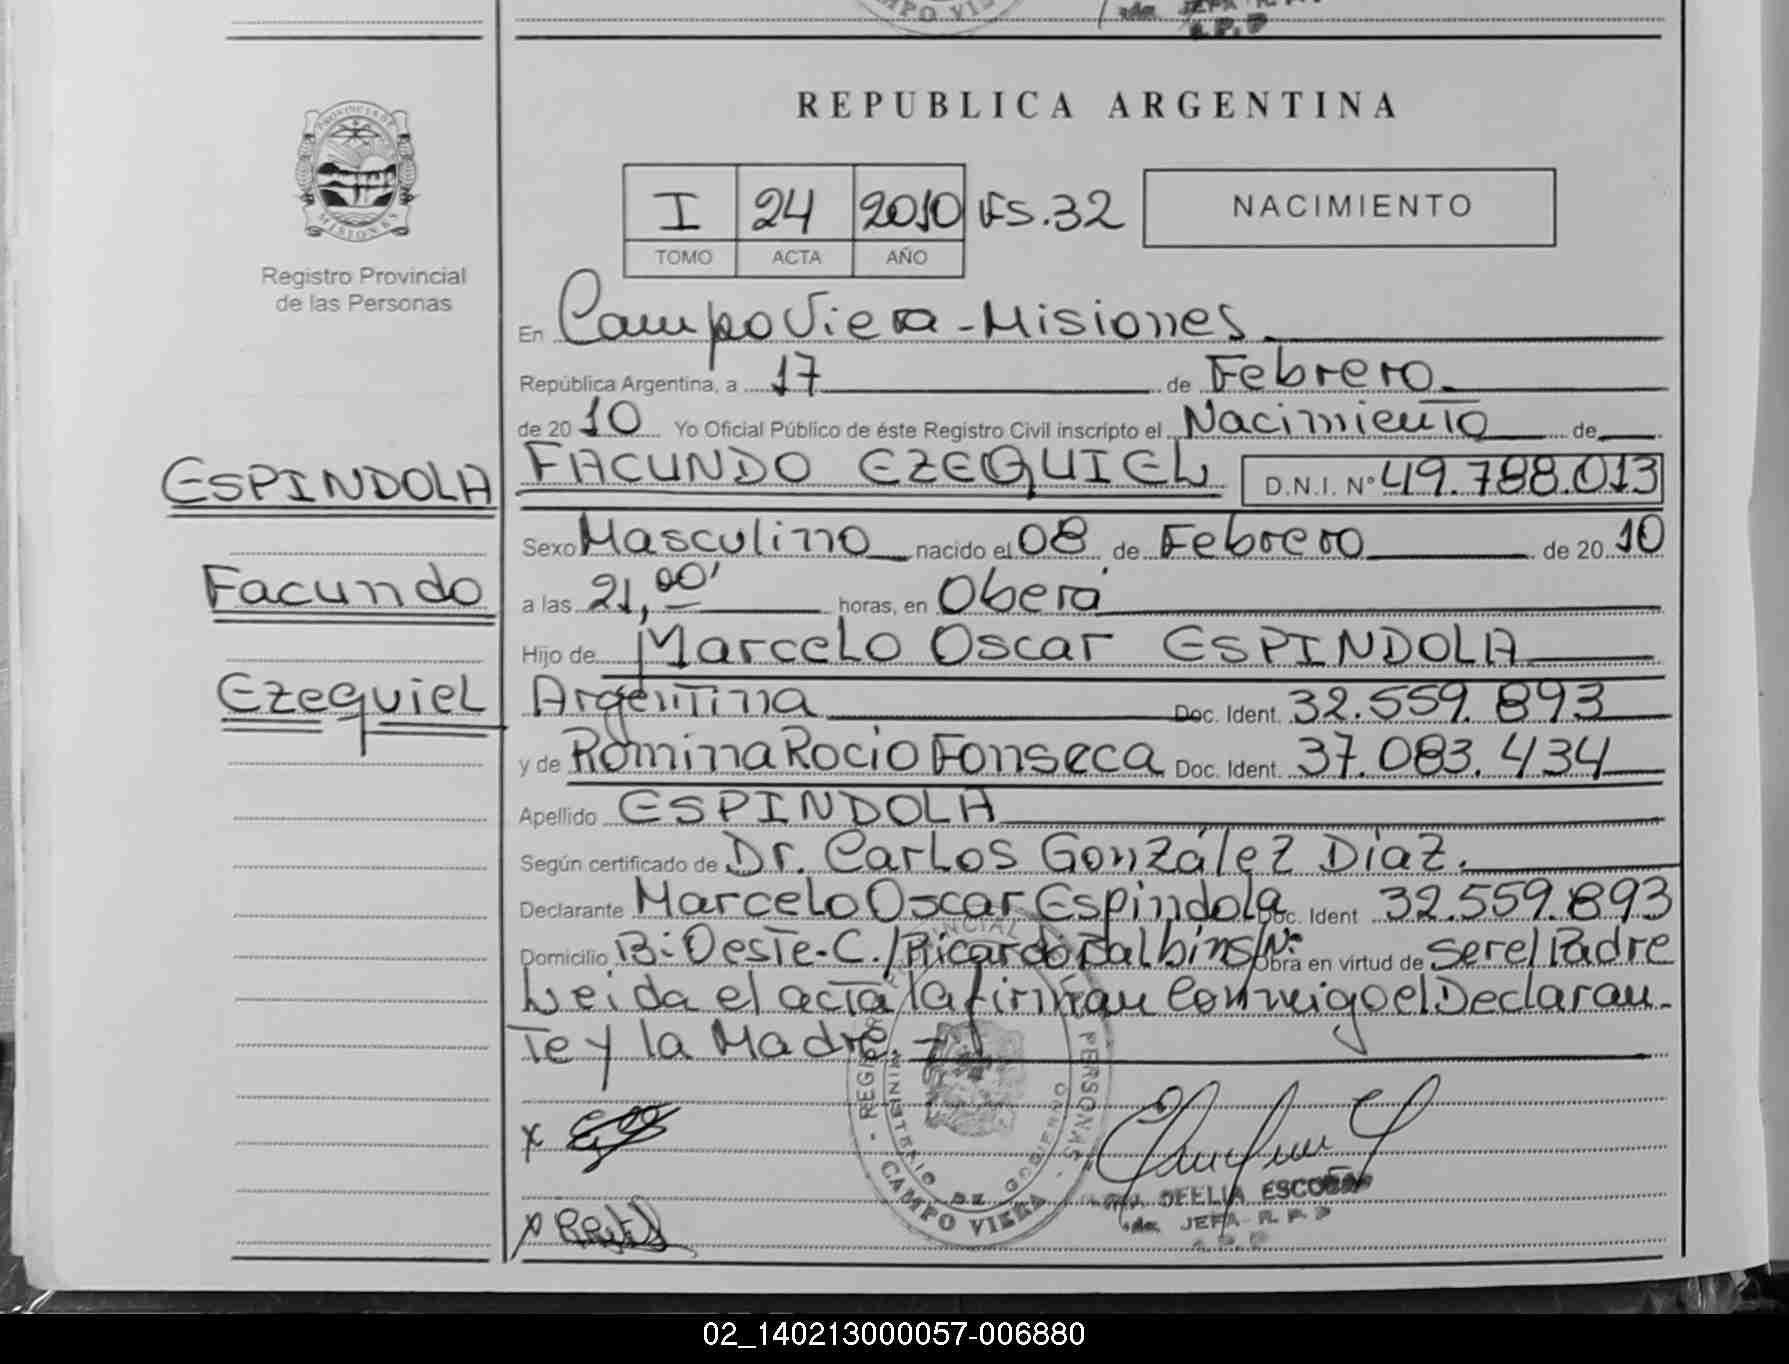 CAMPO VIERA
REPUBLICA ARGENTINA
PROVINCIA DE
MISIONES
Registro Provincial
de las Personas
I 24 2010 FS.32 NACIMIENTO
TOMO ACTA AÑO
En Campo Viera - Misiones
República Argentina, a 17 de Febrero
de 2010 Yo Oficial Público de éste Registro Civil inscripto el Nacimiento de
ESPINDOLA FACUNDO EZEQUIEL D.N.I. Nº 49.788.013
Sexo Masculino nacido el 08 de Febrero de 2010
Facundo a las 21,00' horas, en Oberá
Hijo de Marcelo Oscar ESPINDOLA
Ezequiel Argentina Doc. Ident. 32.559.893
y de Romina Rocio Fonseca Doc. Ident. 37.083.434
Apellido ESPINDOLA
Según certificado de Dr. Carlos González Díaz.
Declarante Marcelo Oscar Espindola Doc. Ident 32.559.893
Domicilio B: Oeste-C./Ricardo Balbin s/Nº Obra en virtud de ser el Padre
Leida el acta la firman conmigo el Declaran-
te y la Madre.-
x
x
REGISTRO PROVINCIAL PERSONAS
MINISTERIO DE GOBIERNO
- CAMPO VIERA -
OFELIA ESCOBAR
JEFA R. P. P
02_140213000057-006880